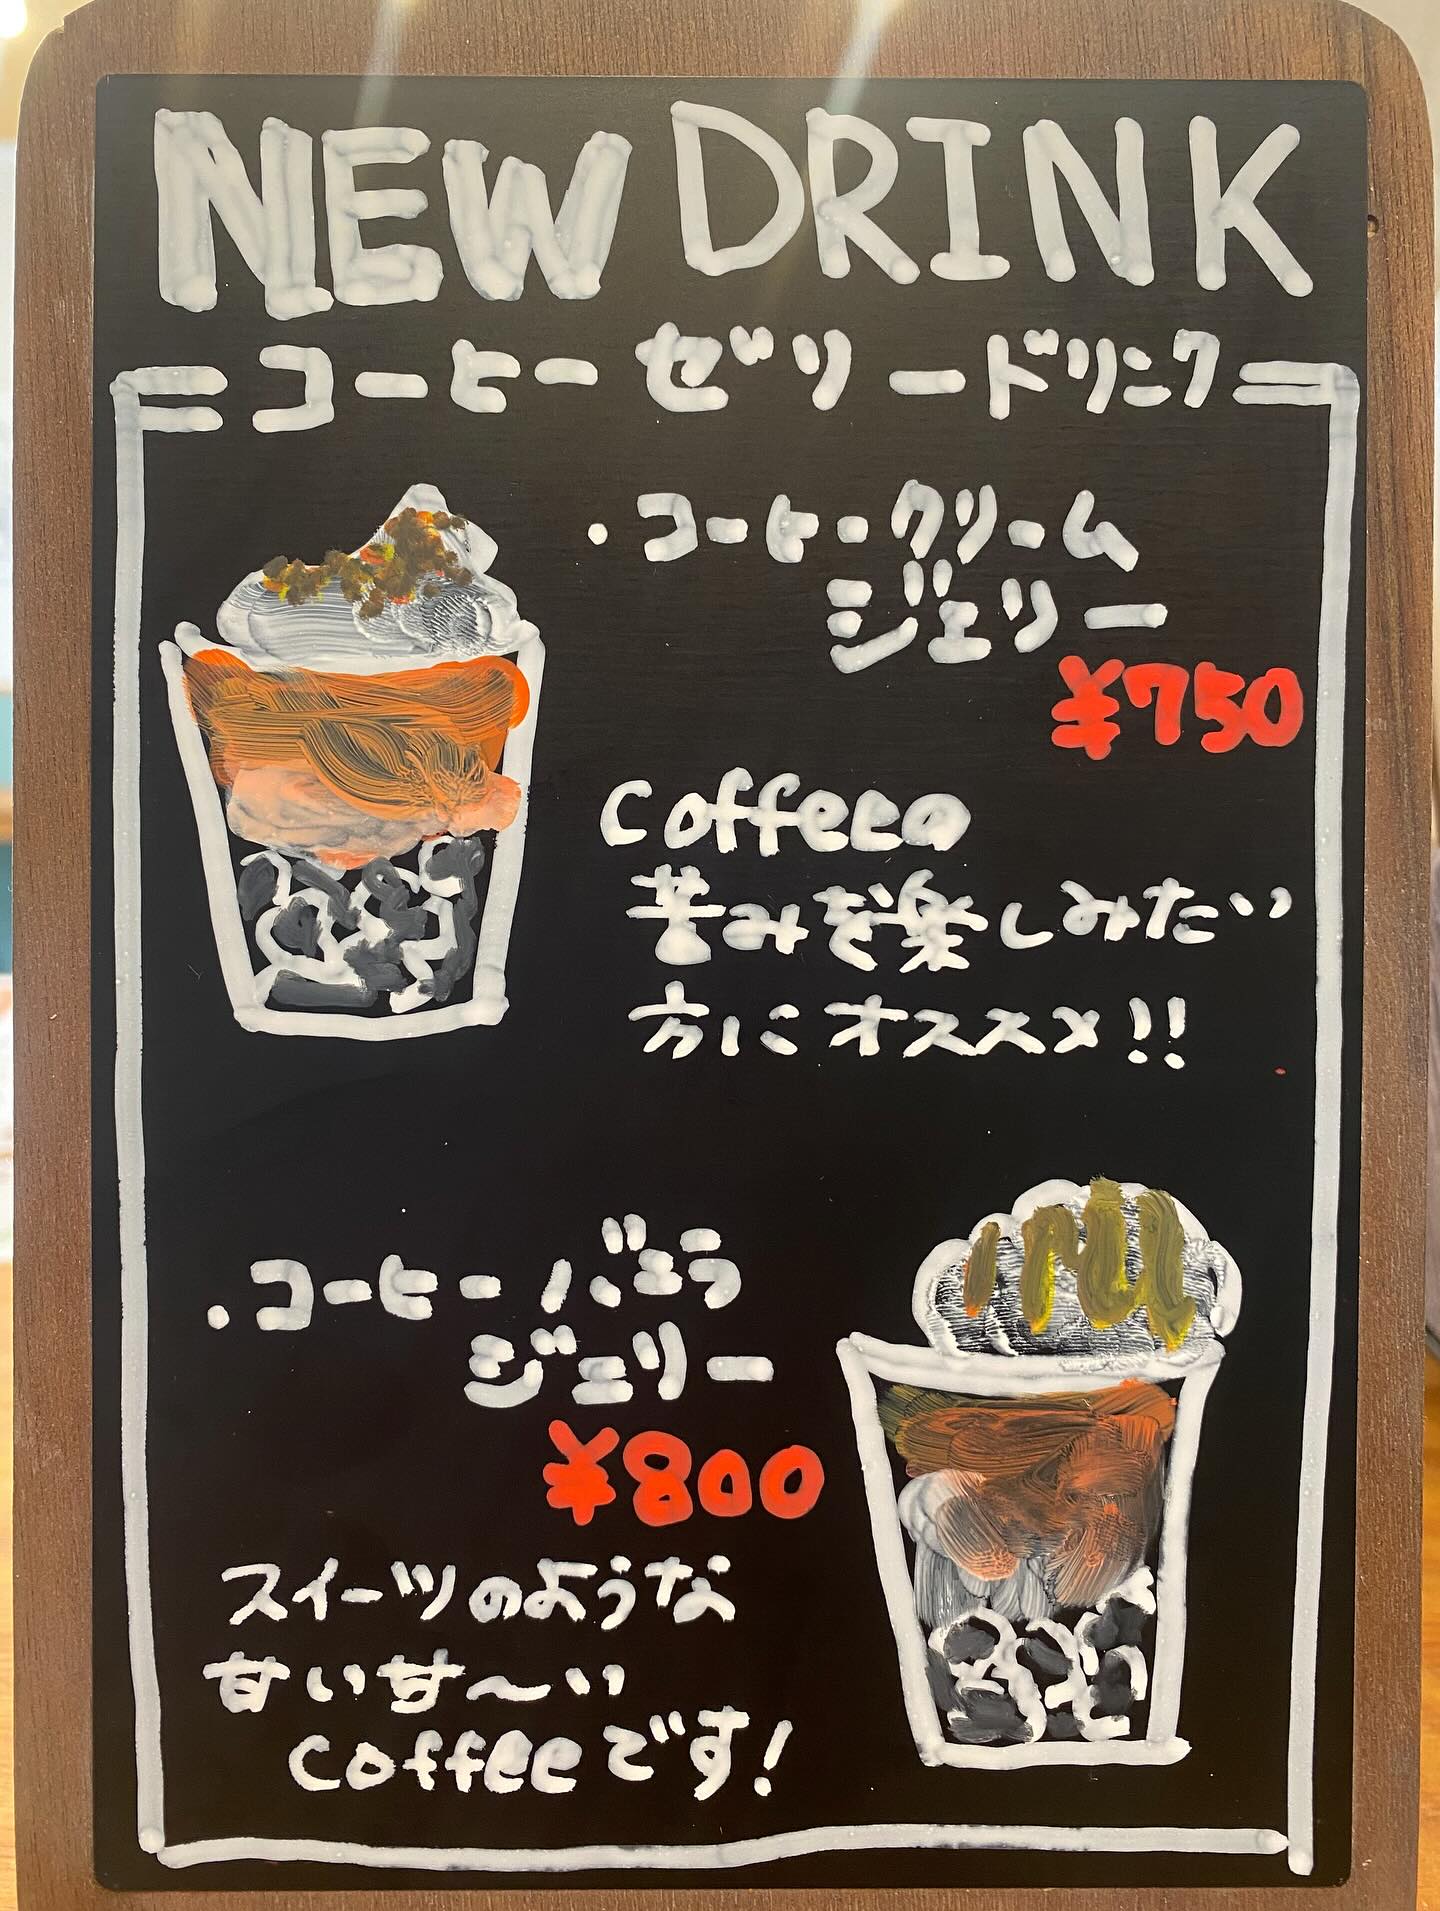 NEW DRINK
=コーヒーゼリードリンク=
・コーヒークリーム
ジェリー
¥750
Coffeeの
苦みを楽しみたい
方にオススメ!!
・コーヒーバニラ
ジェリー
¥800
スイーツのような
甘い甘〜い
coffeeです!